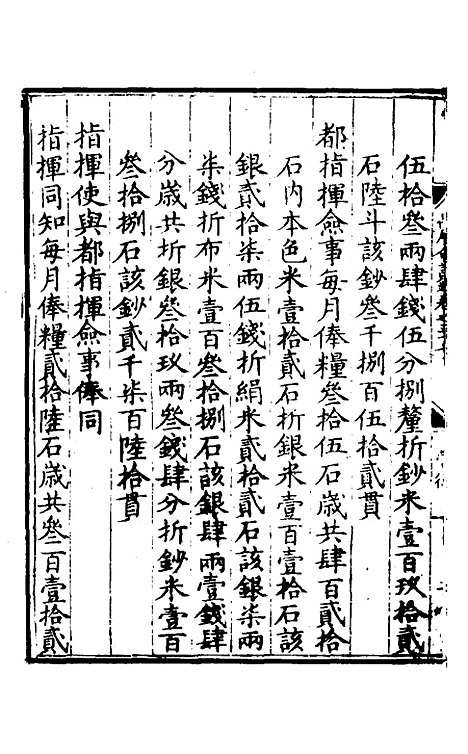 伍拾叄兩肆錢伍分捌釐折鈔米壹百玖拾貳
石陸斗該鈔叄千捌百伍拾貳貫
都指揮僉事每月俸糧叄拾伍石歲共肆百貳拾
石內本色米壹拾貳石折銀米壹百壹拾石該
銀貳拾柒兩伍錢折絹米貳拾貳石該銀柒兩
柒錢折布米壹百叄拾捌石該銀肆兩壹錢肆
分歲共折銀叄拾玖兩叄錢肆分折鈔米壹百
叄拾捌石該鈔貳千柒百陸拾貫
指揮使與都指揮僉事俸同
指揮同知每月俸糧貳拾陸石歲共叄百壹拾貳